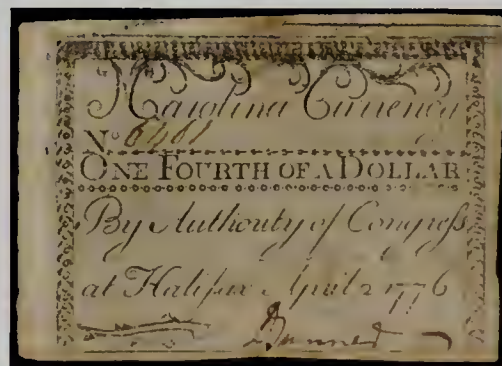 N Carolina Currency
No
ONE FOURTH OF A DOLLAR
By Authority of Congress
at Halifax April 2 1776